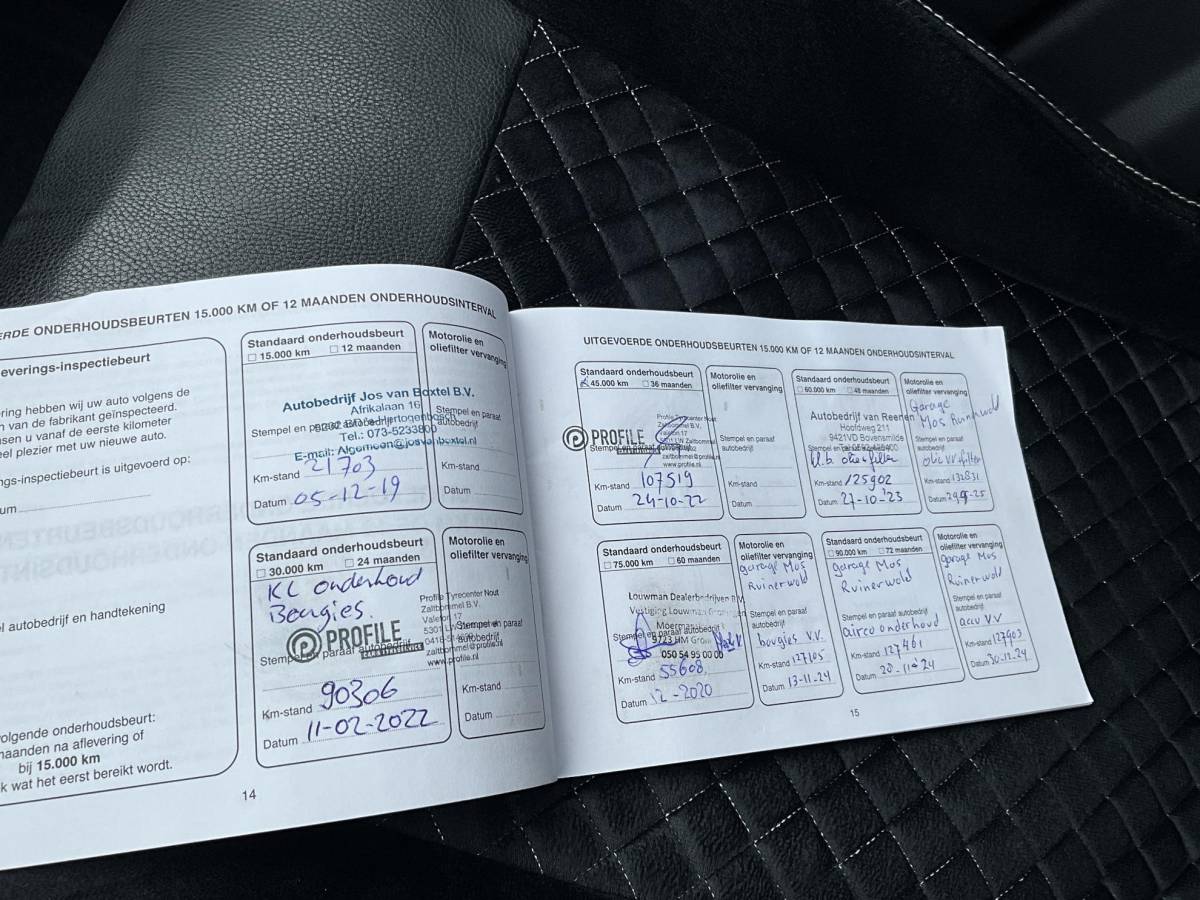 ERDE ONDERHOUDSBEURTEN 15.000 KM OF 12 MAANDEN ONDERHOUDSINTERVAL
everings-inspectiebeurt
ering hebben wij uw auto volgens de
n van de fabrikant geïnspecteerd.
sen u vanaf de eerste kilometer
eel plezier met uw nieuwe auto.
ngs-inspectiebeurt is uitgevoerd op:
um
el autobedrijf en handtekening
olgende onderhoudsbeurt:
maanden na aflevering of
bij 15.000 km
k wat het eerst bereikt wordt.
Standaard onderhoudsbeurt
15.000 km 12 maanden
Autobedrijf Jos van Boxtel B.V.
Afrikalaan 16
Stempel en paraaf autobedrijf
Tel.: 073-5233800
E-mail: Algemeen@josvanboxtel.nl
Km-stand 21703
Datum 05-12-19
Motorolie en
oliefilter vervanging
Stempel en paraaf
autobedrijf
Km-stand
Datum
Standaard onderhoudsbeurt
30.000 km 24 maanden
KL onderhoud
Bougies.
PROFILE
Profile Tyrecenter Nout
Zaltbommel B.V.
Valeton 17
zaltbommel@profile.nl
www.profile.nl
Stempel en paraaf autobedrijf
Km-stand 90306
Datum 11-02-2022
Motorolie en
oliefilter vervanging
Stempel en paraaf
autobedrijf
Km-stand
Datum
14
UITGEVOERDE ONDERHOUDSBEURTEN 15.000 KM OF 12 MAANDEN ONDERHOUDSINTERVAL
Standaard onderhoudsbeurt
45.000 km 36 maanden
PROFILE
Profile Tyrecenter Nout
Zaltbommel B.V.
Valeton 17
zaltbommel@profile.nl
www.profile.nl
Stempel en paraaf autobedrijf
Km-stand 107519
Datum 24-10-22
Motorolie en
oliefilter vervanging
Stempel en paraaf
autobedrijf
Km-stand
Datum
Standaard onderhoudsbeurt
60.000 km 48 maanden
Autobedrijf van Reenen
Hoofdweg 211
9421VD Bovensmilde
Stempel en paraaf autobedrijf
oliefilter
Km-stand 125902
Datum 27-10-'23
Motorolie en
oliefilter vervanging
Garage
Mos Ruinerwold
Stempel en paraaf
autobedrijf
olie VV filter
Km-stand 132831
Datum
Standaard onderhoudsbeurt
75.000 km 60 maanden
Louwman Dealerbedrijven B.V.
Vestiging Louwman Groningen
Stempel en paraaf autobedrijf
050 54 95 00 00
Km-stand 55608
Datum 12-2020
Motorolie en
oliefilter vervanging
garage Mos
Ruinerwold
Stempel en paraaf
autobedrijf
bougies V.V.
Km-stand 127105
Datum 13-11-24
Standaard onderhoudsbeurt
90.000 km 72 maanden
garage Mos
Ruinerwold
Stempel en paraaf autobedrijf
airco onderhoud
Km-stand 127461
Datum 20-11-24
Motorolie en
oliefilter vervanging
garage Mos
Ruinerwold
Stempel en paraaf
autobedrijf
accu VV
Km-stand 127603
Datum 30-12-24
15